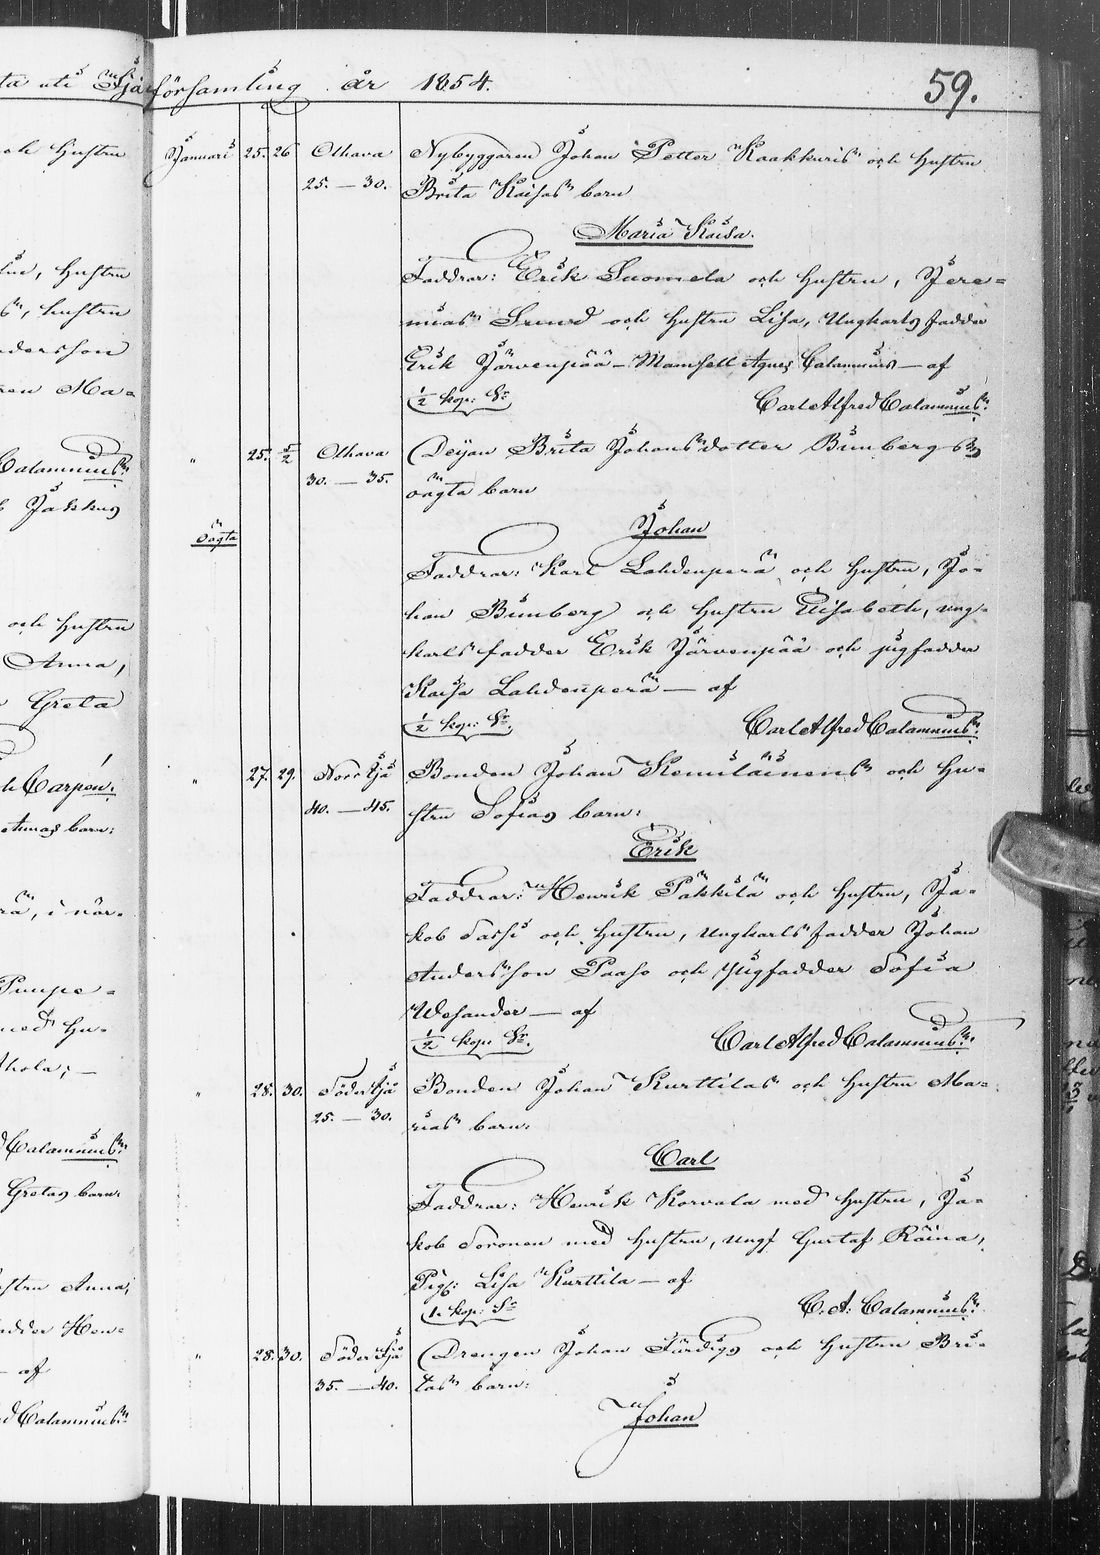 församling år 1854. 59.
Januari 25. 26 Olhava Nybyggaren Johan Petter Kaakkuris och hustru
25. — 30. Brita Kaisas barn
Maria Kaisa.
Faddrar: Erik Suomela och hustru, Jere=
mias Srund och hustru Lisa, Ungkarls fadder
Erik Järvenpää — Mamsell Agnes Calamnius — af
1/2 kop: Sr Carl Alfred Calamnius.
" 25. 5/2 Olhava Deijan Brita Johansdotter Bimbergs
30. — 35. oägta barn
oägta Johan
Faddrar: Karl Lahdenperä och hustru, Jo=
han Bimberg och hustru Elisabeth, ung=
karls fadder Erik Järvenpää och pigfadder
Kaisa Lahdenperä — af
1/2 kop: Sr. Carl Alfred Calamnius.
" 27. 29. Norr Ijå Bonden Johan Kemiläinens och hu=
40. — 45. stru Sofias barn:
Erik
Faddrar: Henrik Pakkila och hustru, Ja=
kob Sassi och hustru, ungkarls fadder Johan
Andersson Paaso och pigfadder Sofia
Wesander — af
1/2 kop: Sr. Carl Alfred Calamnius.
" 28. 30. Söder Ijå Bonden Johan Kurttilas och hustru Ma=
25. — 30. rias barn:
Carl
Faddrar: Henrik Korvala med hustru, Ja=
kob Soronen med hustru, ungf Gustaf Räina,
Pigf: Lisa Kurttila — af
1. kop: Sr C. A. Calamnius.
" 28. 30. Söder Ijå Drengen Johan Färdigs och hustru Bri=
35. — 40. tas barn:
Johan